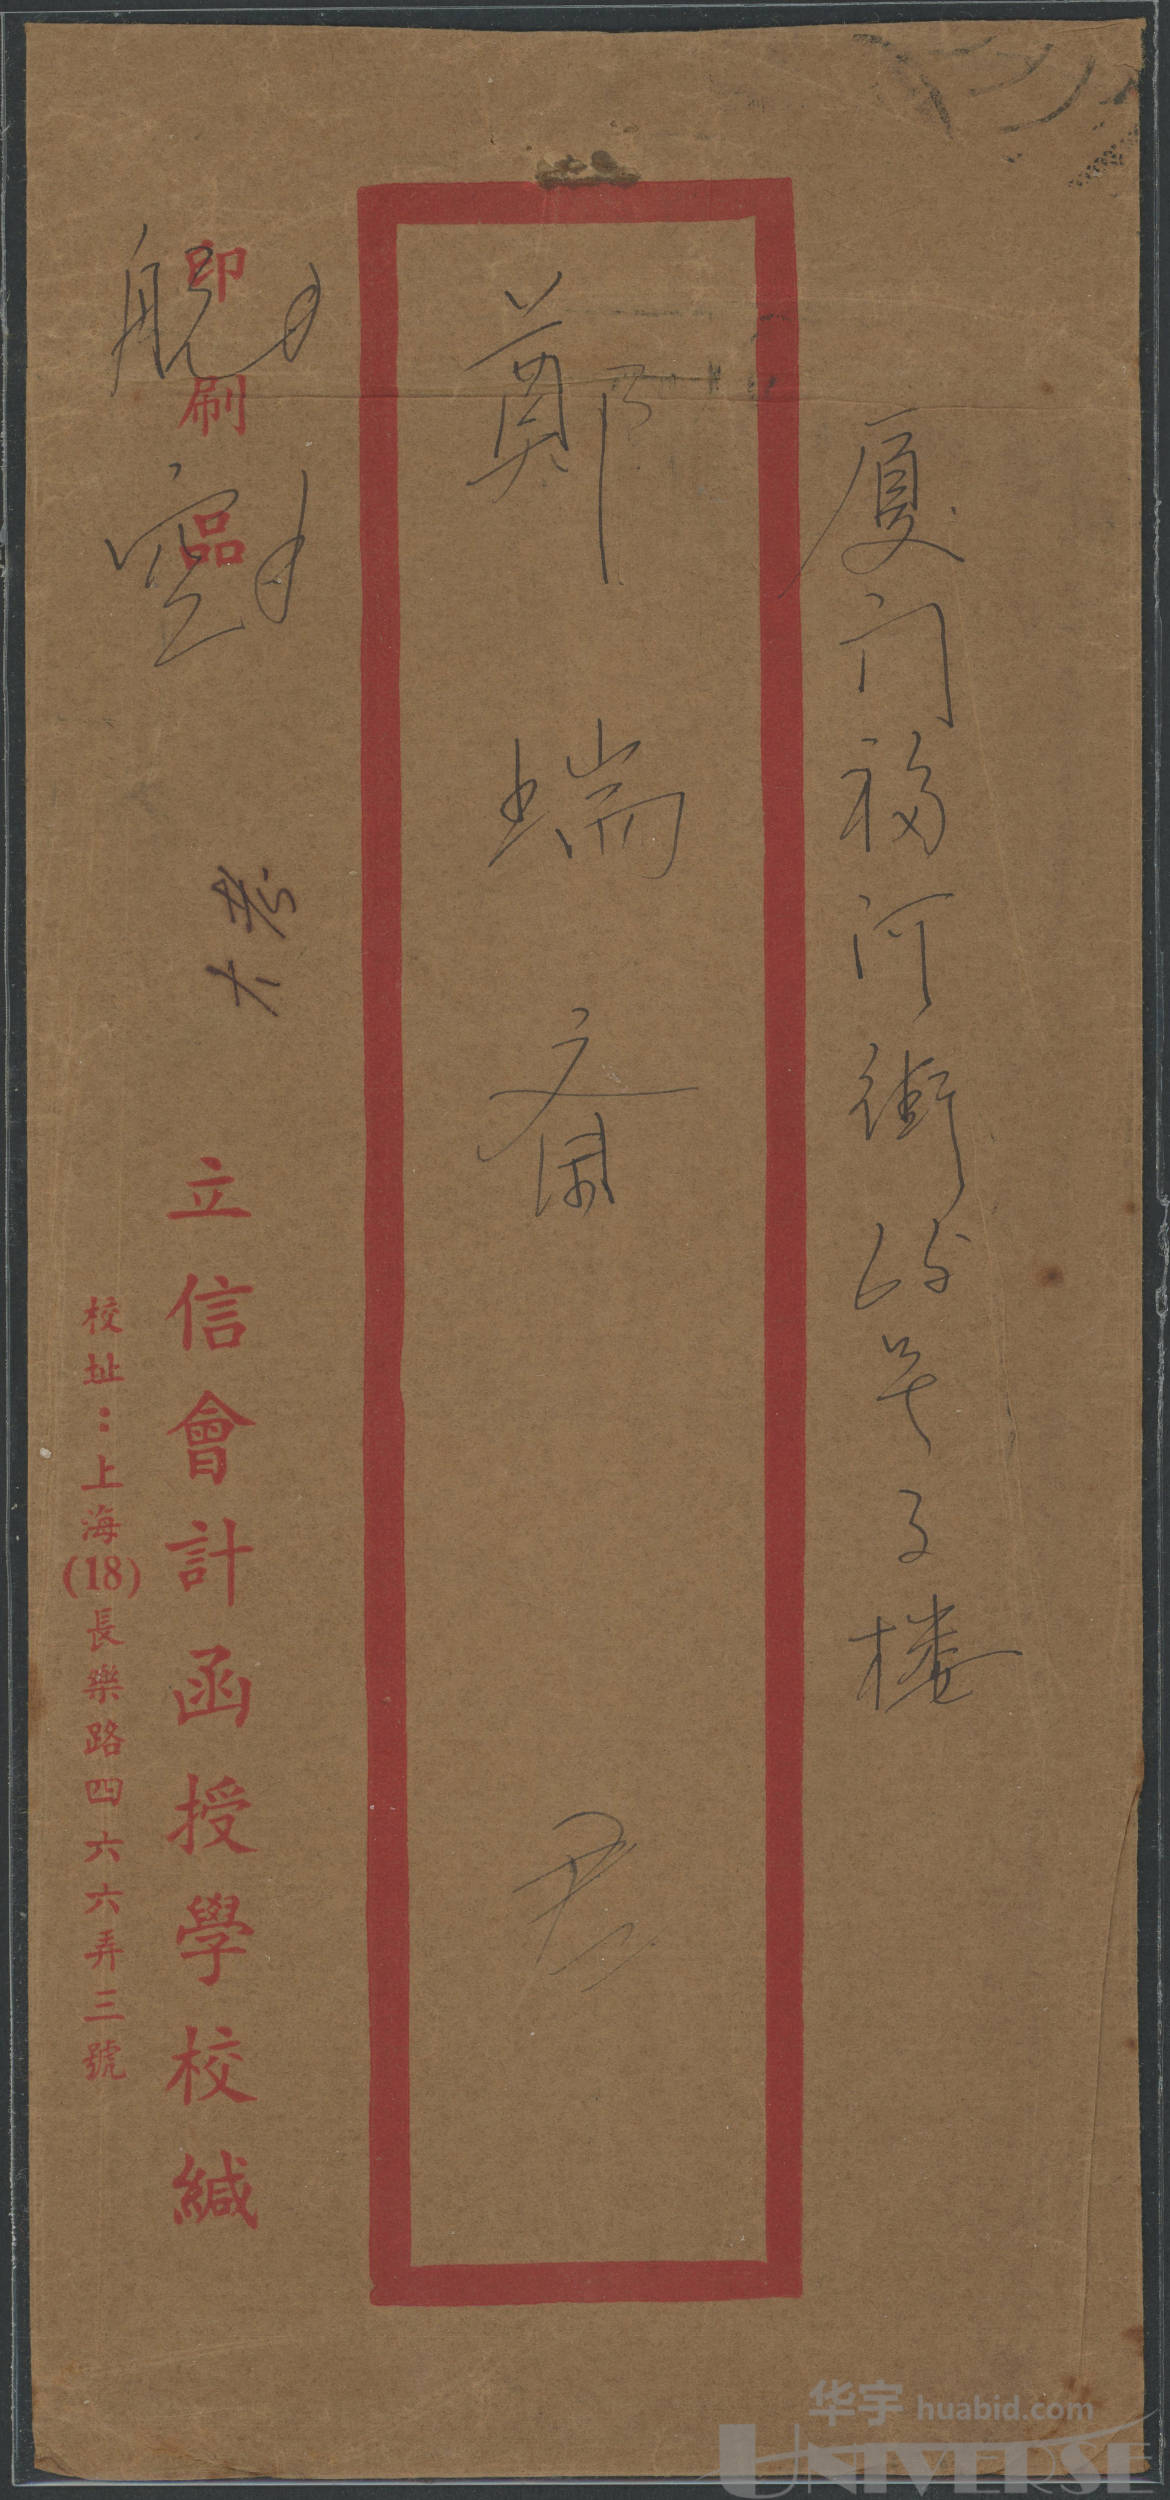 厦门福河街
楼
鄭瑞齋 君
印刷品
航
空
立信會計函授學校緘
校址：上海(18)長樂路四六六弄三號
华宇 huabid.com
UNIVERSE